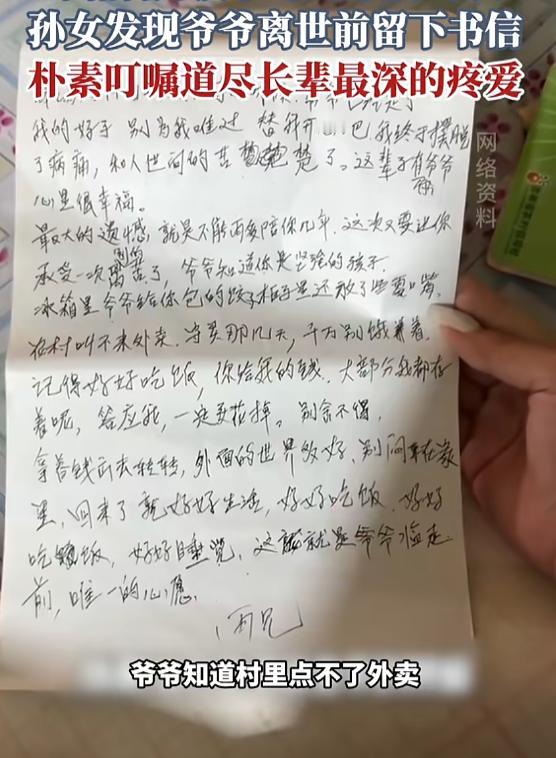 孙女发现爷爷离世前留下书信
朴素叮嘱道尽长辈最深的疼爱
我的好子 别为我难过 替我开 巴 我终于摆脱
了病痛，和人世间的苦 楚了。这辈子有爷爷
心里很幸福。
最大的遗憾 就是不能再多陪你几年。这次又要让你
承受一次 离苦了，爷爷知道你是坚强的孩子。
冰箱里爷爷给你包的饺子 柜子里还放了些零嘴。
农村叫不来外卖。守灵那几天，千万别饿着着。
记得好好吃饭，你给我的钱。大部分我都存
着呢，答应我，一定要花掉。别舍不得。
拿着钱出去转转，外面的世界多好，别闷在家
里，回来了就好好生活，好好吃饭。好好
吃 饭，好好睡觉，这 就是爷爷临走
前，唯一的心愿。
网络资料
爷爷知道村里点不了外卖